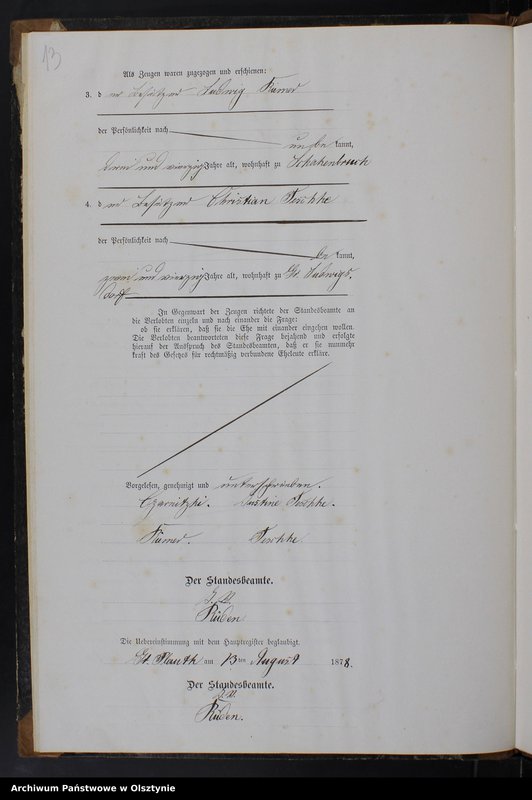 13
Als Zeugen waren zugezogen und erschienen:
3. d er Besitzer Ludwig
der Persönlichkeit nach
unbe kannt,
drei und vierzig Jahre alt, wohnhaft zu Schakenbruch
4. d er Besitzer Christian Jeschke
der Persönlichkeit nach
be kannt,
zwei und vierzig Jahre alt, wohnhaft zu Gr. Ludwigs-
dorf
In Gegenwart der Zeugen richtete der Standesbeamte an
die Verlobten einzeln und nach einander die Frage:
ob sie erklären, daß sie die Ehe mit einander eingehen wollen.
Die Verlobten beantworteten diese Frage bejahend und erfolgte
hierauf der Ausspruch des Standesbeamten, daß er sie nunmehr
kraft des Gesetzes für rechtmäßig verbundene Eheleute erkläre.
Vorgelesen, genehmigt und unterschrieben.
Czarnitzki. Justine Jeschke.
Jeschke
Der Standesbeamte.
J. V.
Rüben
Die Uebereinstimmung mit dem Hauptregister beglaubigt.
Gr. Plauth am 13 ten August 1878.
Der Standesbeamte.
J. V.
Rüben.
Archiwum Państwowe w Olsztynie